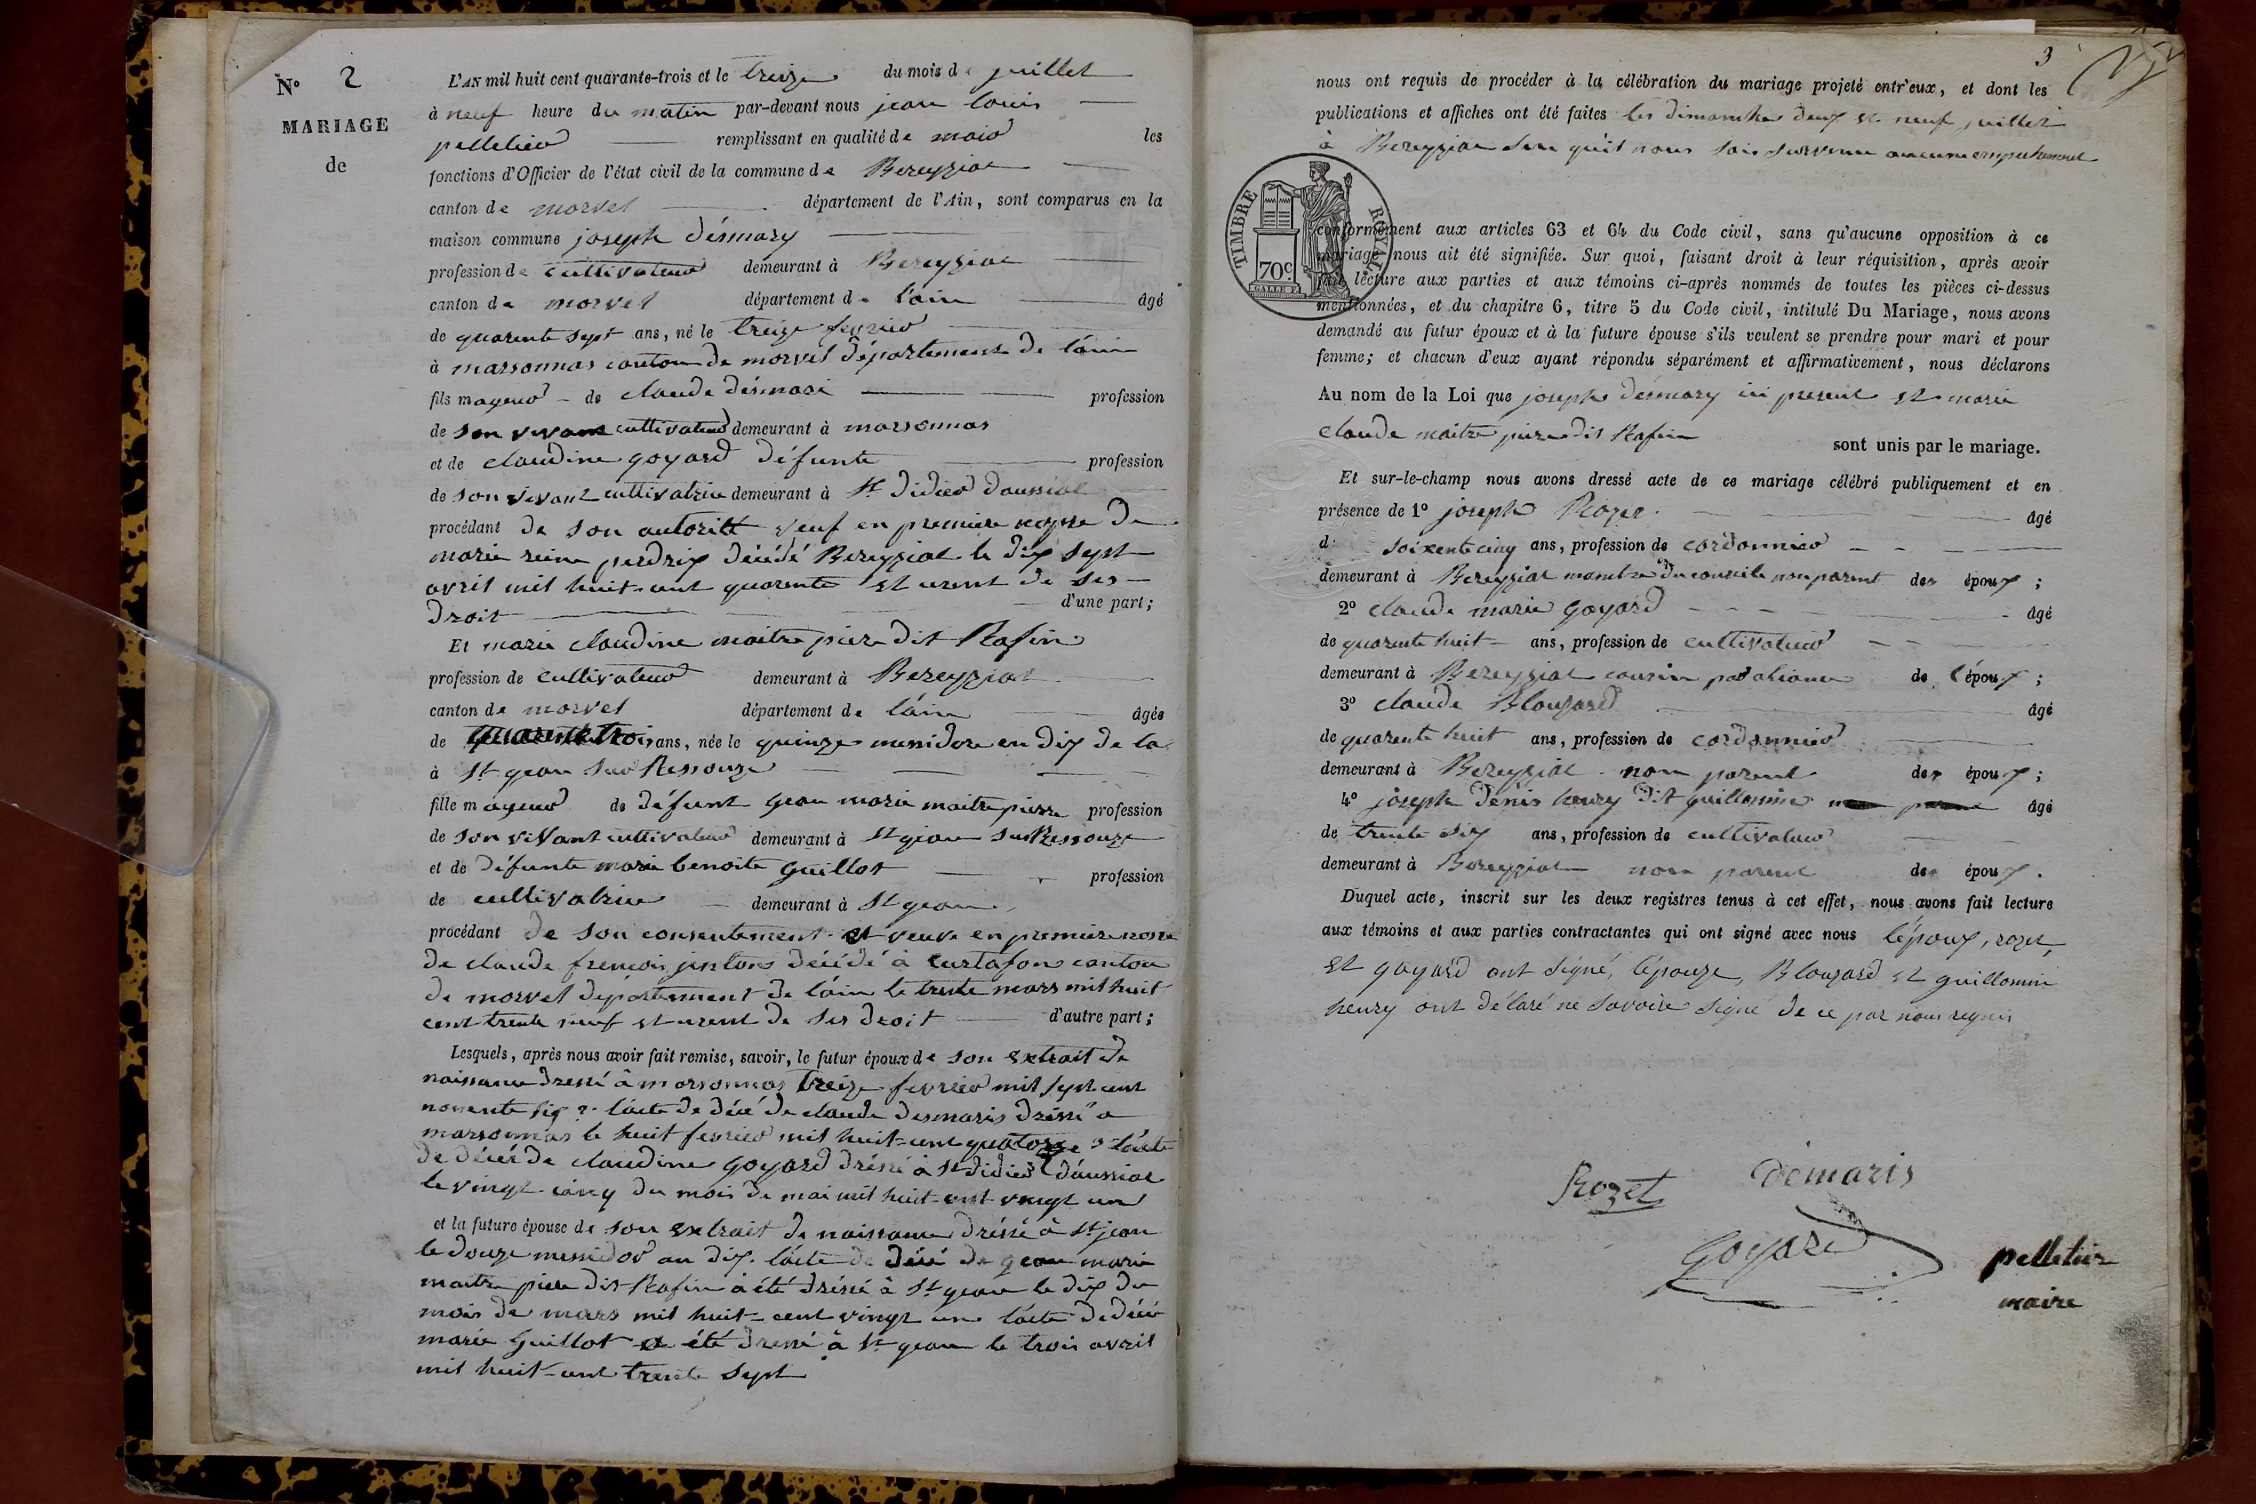 N° 2
MARIAGE
de
L'AN mil huit cent quarante-trois et le treize du mois de juillet
à neuf heure du matin par-devant nous jean louis
pelletier remplissant en qualité de maire les
fonctions d'Officier de l'état civil de la commune de Bereyziat
canton de morvel département de l'Ain, sont comparus en la
maison commune joseph désmary
profession de cultivateur demeurant à Bereyziat
canton de morvel département de l'ain âgé
de quarente sept ans, né le treize fevrier
à marsonnas canton de morvel département de l'ain
fils mageur de claude désmari profession
de son vivant cultivateur demeurant à marsonnas
et de claudine goyard défunte profession
de son vivant cultivatrice demeurant à St didier daussiat
procédant de son autorité veuf en premiere nopse de
marie reine perdrix décédé Bereyziat le dix sept
avril mil huit cent quarente et usent de ses
droit d'une part;
Et marie claudine maitre piere dit Rafin
profession de cultivateur demeurant à Bereyziat
canton de morvel département de l'ain âgée
de quarente trois ans, née le quinze messidore en dix de la
à St gean sur Ressouze
fille mageur de défunt gean marie maitre pierre profession
de son vivant cultivateur demeurant à St gean sur Ressouze
et de défunte marie benoite guillot profession
de cultivatrice demeurant à St gean
procédant de son consentement et veuve en premiere nosse
de claude frencois décédé a curtafon canton
de morvel département de l'ain le trente mars mil huit
cent trente neuf et usent de ses droit d'autre part;
Lesquels, après nous avoir fait remise, savoir, le futur époux de son extrait de
naissance dressé à marsonnas treize fevrier mil sept cent
nonente six 2 l'acte de décé de claude desmaris dréssé a
marsonnas le huit fevrier mil huit cent quatorze 3 l'acte
de décés de claudine Goyard dréssé à St didier d'aussiat
le vingt cinq du mois de mai mil huit cent vingt un
et la future épouse de son extrait de naissance dréssé à St jean
le douze messidor an dix. l'acte de décé de gean marie
maitre piere dit Rafin a été dréssé à St gean le dix du
mois de mars mil huit cent vingt un l'acte de décé
marie Guillot a été dressé à St gean le trois avril
mil huit cent trente sept
3
nous ont requis de procéder à la célébration du mariage projeté entr'eux, et dont les
publications et affiches ont été faites les dimanches deux et neuf juillet
à Bereyziat sen qu'il nous sois survenu aucune empechement
TIMBRE ROYAL
70 c.
conformément aux articles 63 et 64 du Code civil, sans qu'aucune opposition à ce
mariage nous ait été signifiée. Sur quoi, faisant droit à leur réquisition, après avoir
fait lecture aux parties et aux témoins ci-après nommés de toutes les pièces ci-dessus
mentionnées, et du chapitre 6, titre 5 du Code civil, intitulé Du Mariage, nous avons
demandé au futur époux et à la future épouse s'ils veulent se prendre pour mari et pour
femme; et chacun d'eux ayant répondu séparément et affirmativement, nous déclarons
Au nom de la Loi que joseph désmary ici present et marie
claude maitre piere dit Rafin sont unis par le mariage.
Et sur-le-champ nous avons dressé acte de ce mariage célébré publiquement et en
présence de 1° joseph Rozet âgé
d soixente cinq ans, profession de cordonnier
demeurant à Bereyziat membre du conseile non parent des époux;
2° claude marie goyard âgé
de quarente huit ans, profession de cultivateur
demeurant à Bereyziat cousin par aliance de l'époux;
3° claude Blouzard âgé
de quarente huit ans, profession de cordonnier
demeurant à Bereyziat non parent des époux;
4° joseph dénis henry dit guillomin âgé
de trente six ans, profession de cultivateur
demeurant à Bereyziat non parent des époux.
Duquel acte, inscrit sur les deux registres tenus à cet effet, nous avons fait lecture
aux témoins et aux parties contractantes qui ont signé avec nous l'époux, rozet,
et goyard ont signé, l'épouze, Blouzard et guillomin
henry ont déclaré ne savoire signé de ce par nous requis
Rozet
démaris
Goyard
pelletier
maire